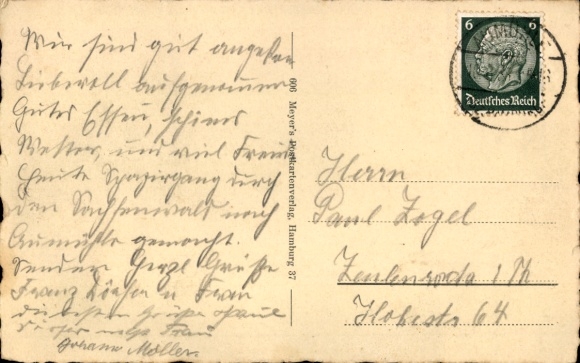 Wir sind gut angekom
Liebevoll aufgenommen
Gutes Essen, schönes
Wetter, und viel Freude
Heute Spazirgang durch
den Sachsenwald nach
Aumühle gemacht.
Senden Herzl Grüße
Franz u Frau
die besten Grüße Paul
Frau
Johann Möller.
606 Meyer's Postkartenverlag, Hamburg 37
6 6
Deutsches Reich
Herrn
Paul Zogel
Zeulenroda i Th
Hohestr 64